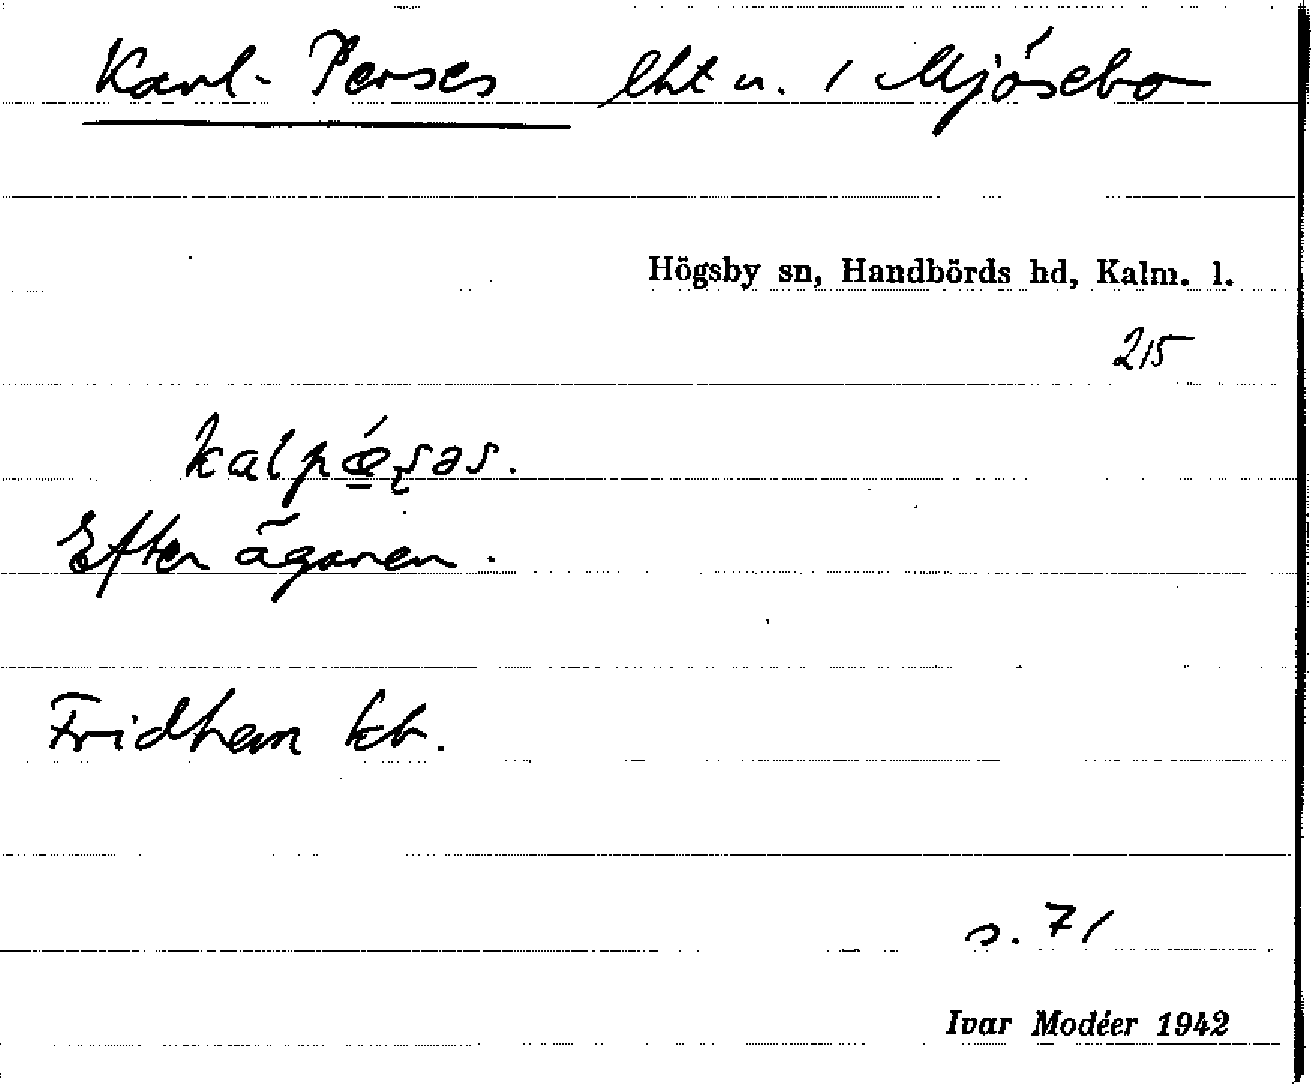 Karl-Perses lht u. 1 Mjösebo
Högsby sn, Handbörds hd, Kalm. l.
215
kalpǽʂəs.
Efter ägaren.
Fridhem kb.
s. 71
Ivar Modéer 1942